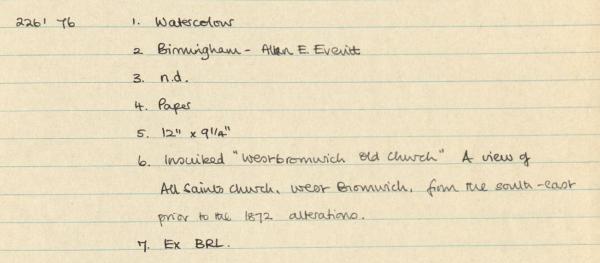 226' 76 1. Watercolour
2 Birmingham - Allen E. Everitt
3. n.d.
4. Paper
5. 12" x 9 1/4"
6. Inscribed "Westbromwich Old Church" A view of
All Saints church, West Bromwich, from the south-east
prior to the 1872 alterations.
7. Ex BRL.